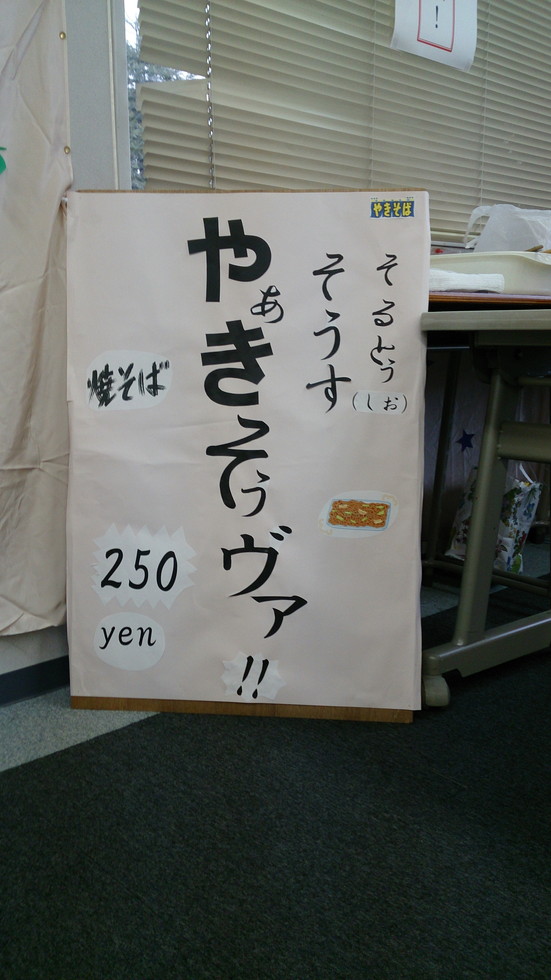 !
やきそば
そるとぅ
(しお)
そうす
やぁきそぅヴァ!!
焼そば
250
yen